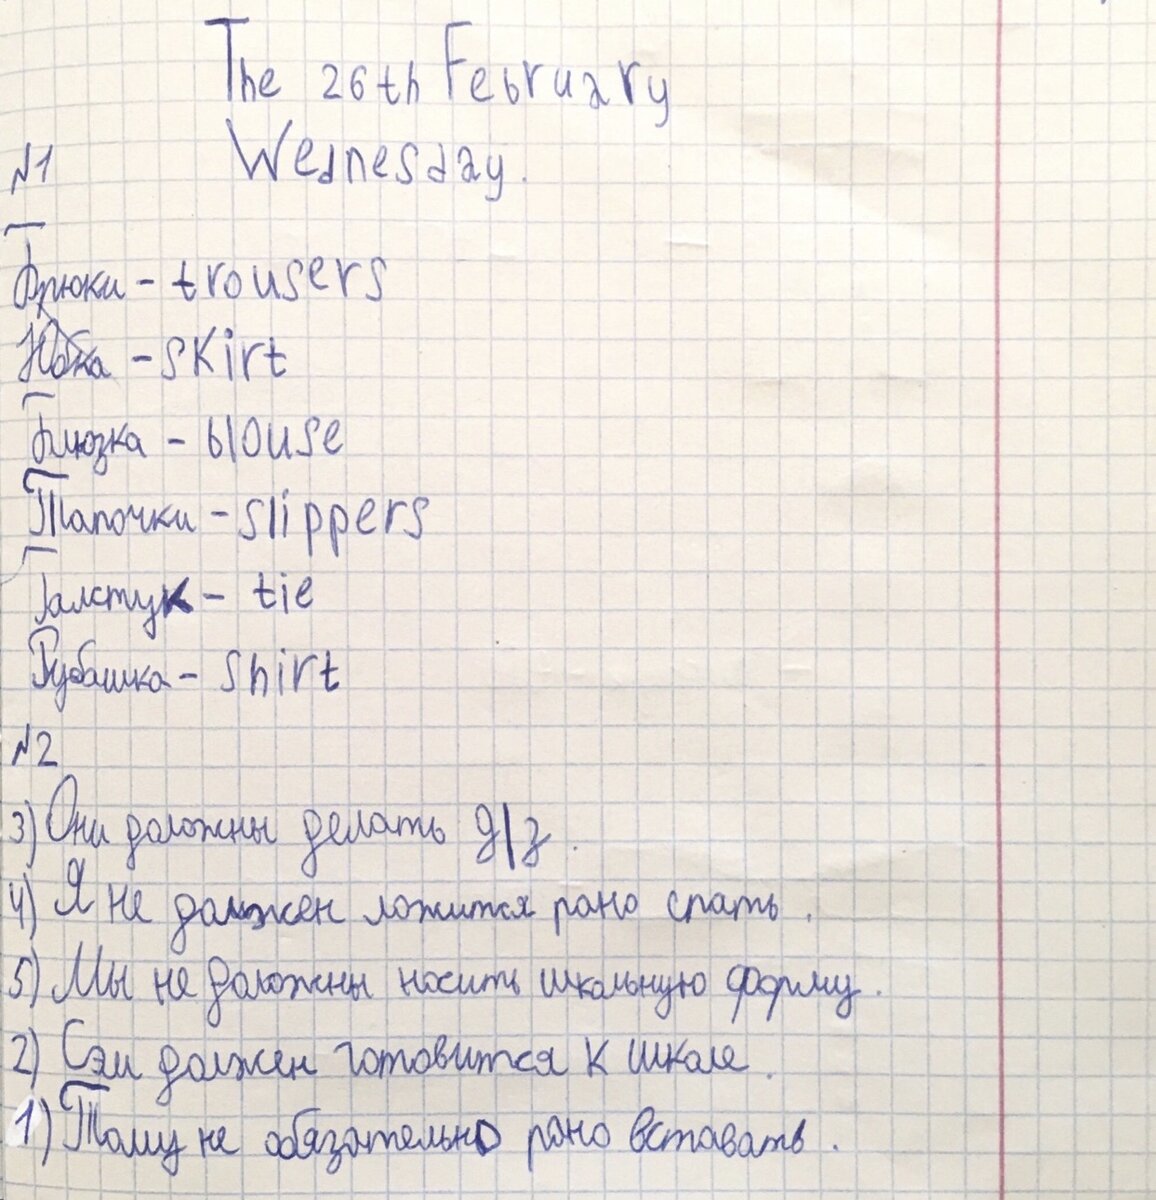 The 26th February
Wednesday.
№1
Брюки - trousers
Юбка - skirt
Блюзка - blouse
Тапочки - slippers
Галстук - tie
Рубашка - shirt
№2
3) Они должны делать д/з.
4) Я не должен ложится рано спать.
5) Мы не должны носить школьную форму.
2) Сэм должен готовится к школе.
1) Тому не обязательно рано вставать.